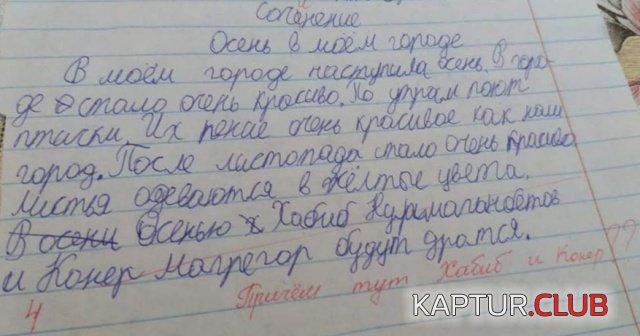 Сочинение
Осень в моём городе
В моём городе наступила осень. В горо-
де стало очень красиво. По утрам поют
птички. Их пение очень красивое как наш
город. После листопада стало очень красиво
листья одеваются в жёлтые цвета.
В осени Осенью Хабиб Нурмагомедов
и Конер Магрегор будут дратся.
4 Причём тут Хабиб и Конер??
KAPTUR.CLUB